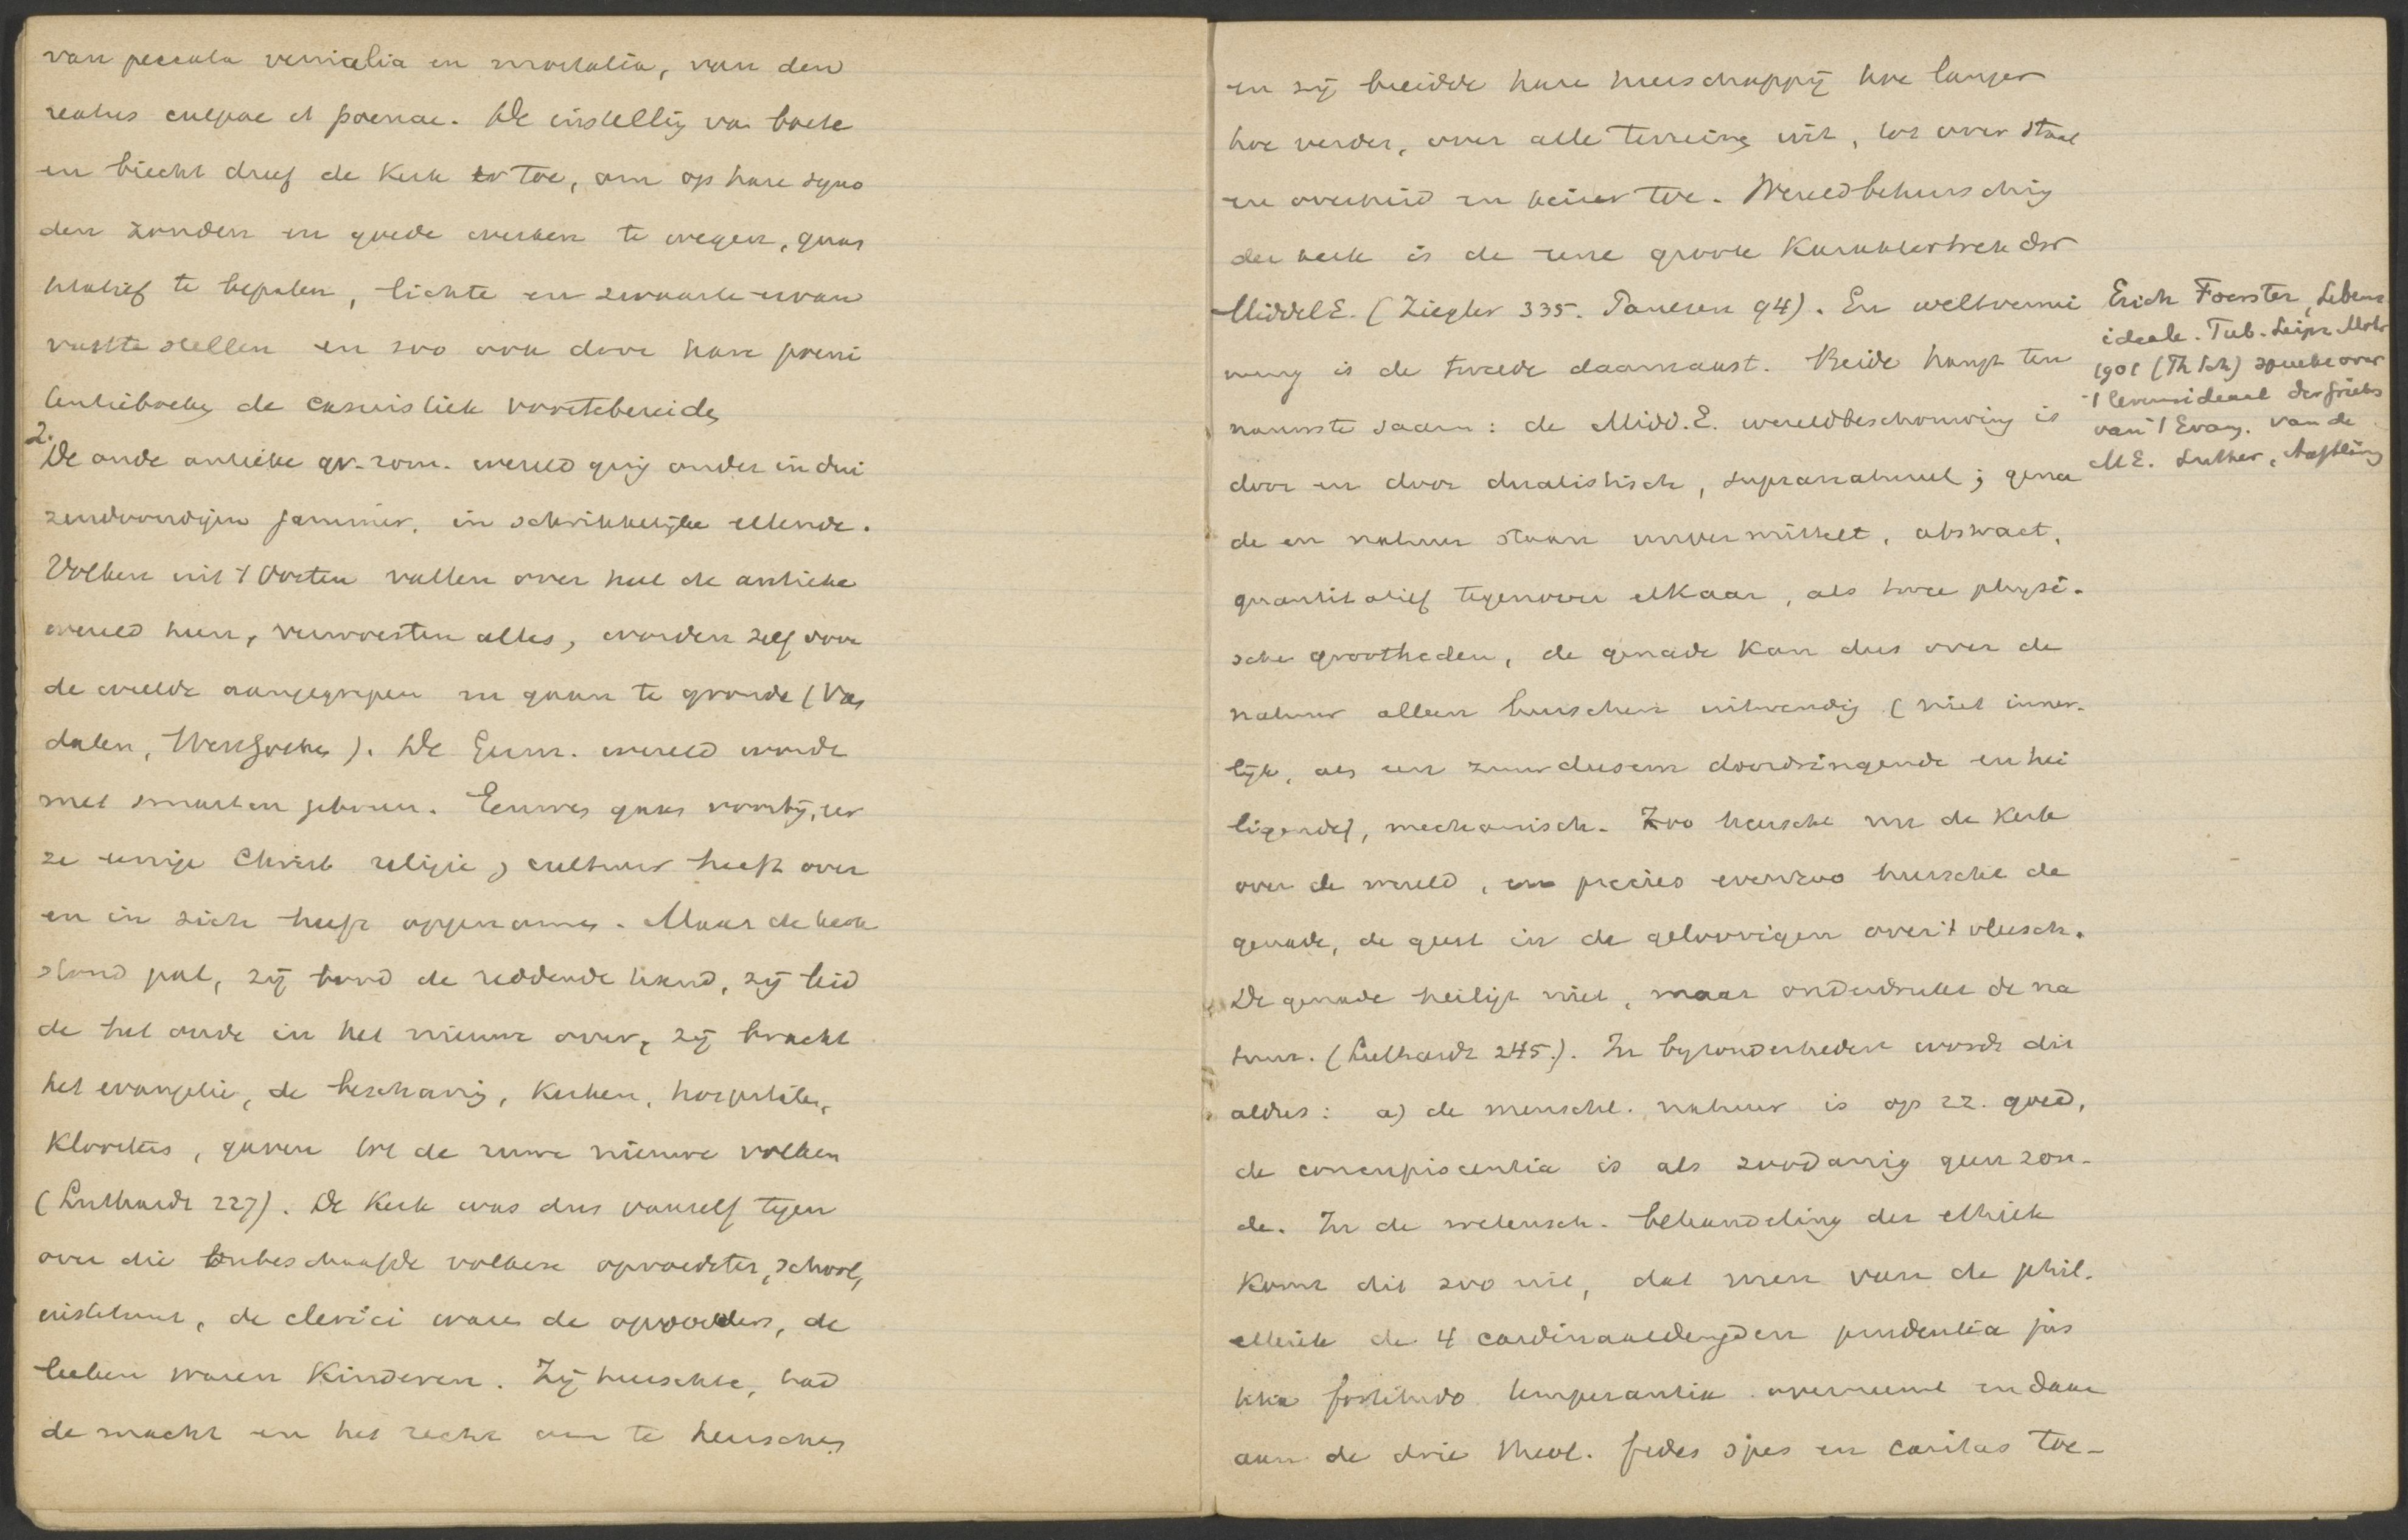 van peccata venialia en mortalia, van den
reatus culpae et poenae. De instelling van boete
en biecht dreef de Kerk er toe, om op hare syno
den zonden en goede werken te wegen, quan
titatief te bepalen, lichte en zwaarte ervan
vast te stellen en zoo ook door hare poeni
tentieboeken de casuistiek voortebereiden
2.
De oude antieke gr.-rom. wereld ging onder in dui
zendvoudigen jammer, in schrikkelijke ellende.
Volken uit 't Oosten vallen over heel de antieke
wereld heen, verwoesten alles, worden zelf door
de weelde aangegrepen en gaan te gronde (Van
dalen, WestGothen). De Germ. wereld wordt
met smarten geboren. Eeuwen gaan voorbij, eer
ze eenige Christ religie, cultuur heeft over
en in zich heeft opgenomen. Maar de kerk
stond pal, zij bood de reddende hand, zij leid
de het oude in het nieuwe over, zij bracht
het evangelie, de beschaving, Kerken, hospitalen,
Kloosters, gaven tot de ruwe nieuwe volken
(Luthardt 227). De Kerk was dus vanzelf tegen
over die onbeschaafde volken opvoedster, school,
instituut, de clerici waren de opvoeders, de
leeken waren Kinderen. Zij heerschte, had
de macht en het recht om te heerschen
en zij breidde hare heerschappij hoe langer
hoe verder, over alle terreinen uit, tot over staat
en overheid en keizer toe. Wereldbeheersching
der kerk is de eene groote Karaktertrek der
MiddelE. (Ziegler 335. Paulsen 94). En weltvernei
nung is de tweede daarnaast. Beide hangt ten
nauwste saam: de Midd.E. wereldbeschouwing is
door en door dualistisch, supranatureel; gena
de en natuur staan unvermittelt, abstract,
quantitatief tegenover elkaar, als twee physi-
sche grootheden, de genade kan dus over de
natuur alleen heerschen uitwendig (niet inner-
lijk, als een zuurdeesem doordringende en hei
ligende), mechanisch. Zoo heerscht nu de Kerk
over de wereld, en precies evenzoo heerscht de
genade, de geest in de geloovigen over 't vleesch.
De genade heiligt niet, maar onderdrukt de na
tuur. (Luthardt 245.). In byzonderheden wordt dit
aldus: a) de menschl. natuur is op zz. goed,
de concupiscentia is als zoodanig geen zon-
de. In de wetensch. behandeling der ethiek
komt dit zoo uit, dat men van de phil.
ethiek de 4 cardinaaldeugden prudentia jus
titia fortitudo temperantia overneemt en daar
aan de drie theol. fides spes en caritas toe-
Erich Foerster, Lebens
ideale. Tub. Leipz Mohr
1901 (Th Sch) spreekt over
't levensideaal der Grieks
van 't Evang. van de
ME. Luther, Aufklärung